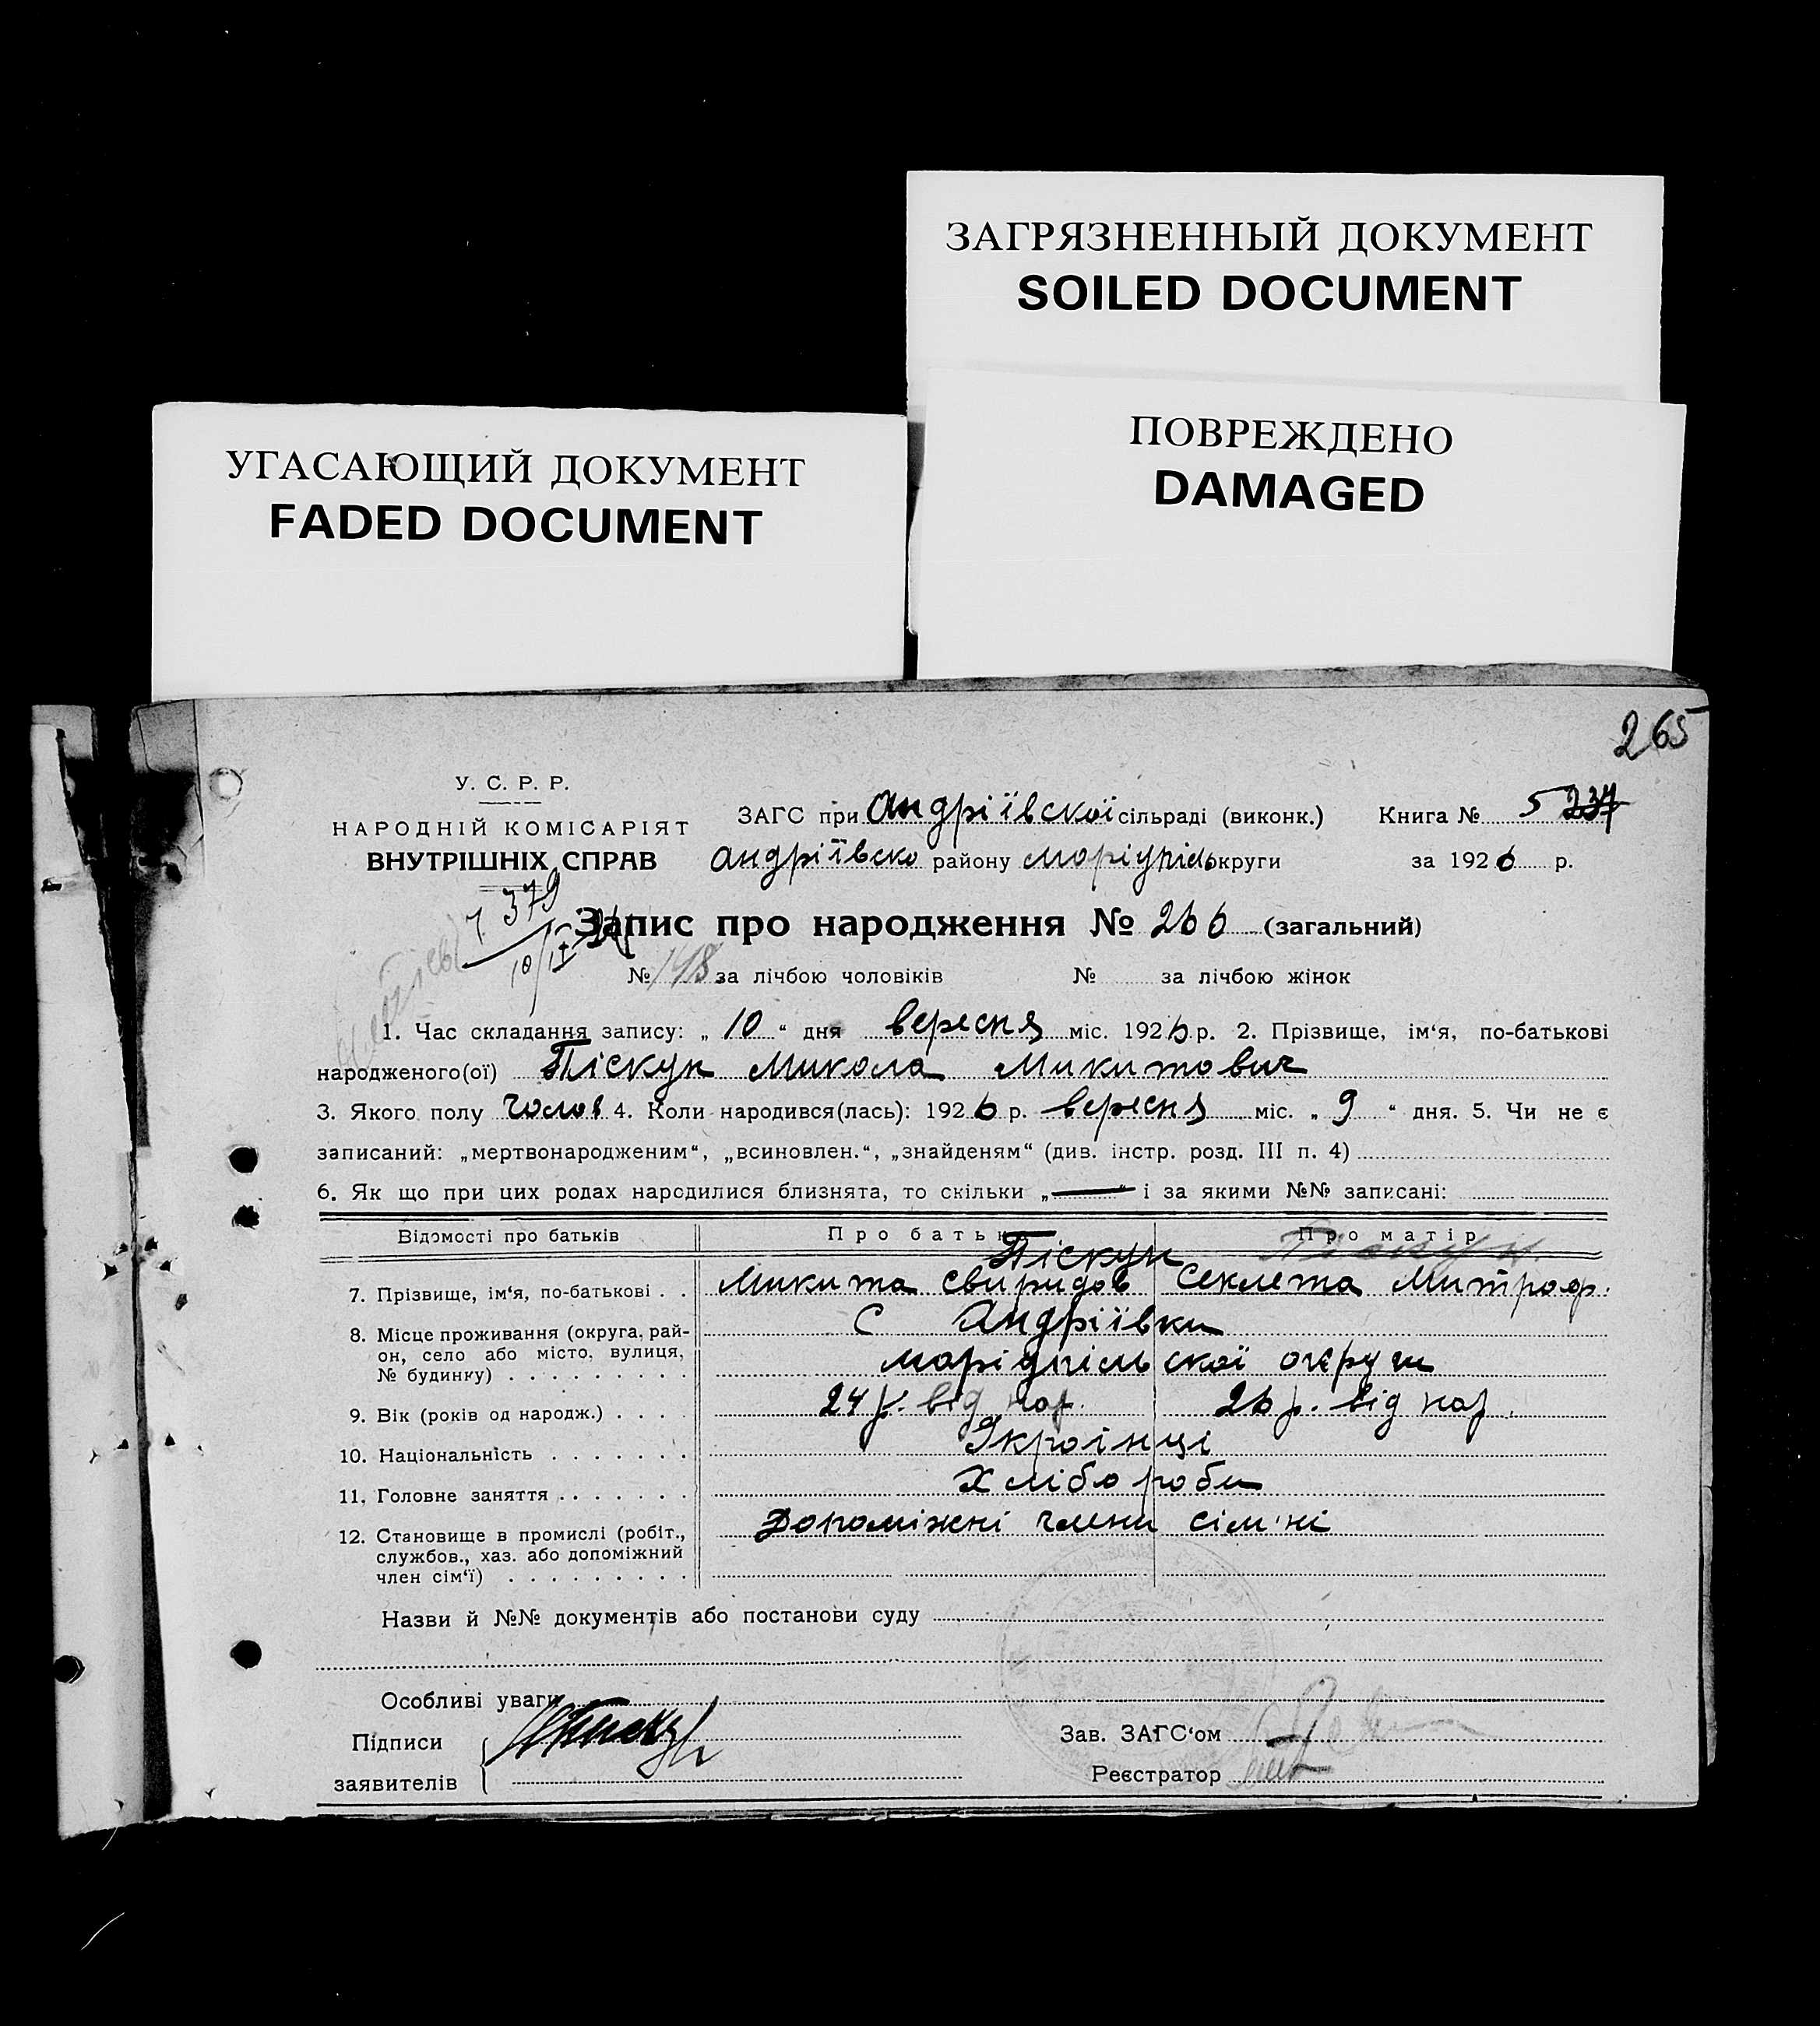 ЗАГРЯЗНЕННЫЙ ДОКУМЕНТ
SOILED DOCUMENT
ПОВРЕЖДЕНО
DAMAGED
УГАСАЮЩИЙ ДОКУМЕНТ
FADED DOCUMENT
265
У. С. Р. Р.
НАРОДНІЙ КОМІСАРІЯТ
ВНУТРІШНІХ СПРАВ
ЗАГС при Андріївскої сільраді (виконк.) Книга № 5 237
Андріївско району Маріупіль округи за 1926 р.
379
10/IX
Запис про народження № 266 (загальний)
№ 148 за лічбою чоловіків № за лічбою жінок
1. Час складання запису: „ 10 “ дня вересня міс. 1926 р. 2. Прізвище, ім‘я, по-батькові
народженого(ої) Піскун Микола Микитович
3. Якого полу чолов 4. Коли народився(лась): 1926 р. вересня міс. „ 9 “ дня. 5. Чи не є
записаний: „мертвонародженим“, „всиновлен.“, „знайденям“ (див. інстр. розд. III п. 4)
6. Як що при цих родах народилися близнята, то скільки „—“ і за якими №№ записані:
Відомості про батьків Про батька Про матір
Піскун Піскун
7. Прізвище, ім‘я, по-батькові . . Микита Свиридов Секлета Митроф.
8. Місце проживання (округа, рай-
он, село або місто, вулиця,
№ будинку) . . . . . . . . .
С Андріївки
маріупільскої округи
9. Вік (років од народж.) . . . . 24 р. від нар. 26 р. від нар.
10. Національність . . . . . . . Украінці
11. Головне заняття . . . . . . . Хлібороби
12. Становище в промислі (робіт.,
службов., хаз. або допоміжний
член сім‘ї) . . . . . . . . .
Допоміжні члени сім'ні
Назви й №№ документів або постанови суду
Особливі уваги
Підписи
заявителів
Зав. ЗАГС‘ом
Реєстратор